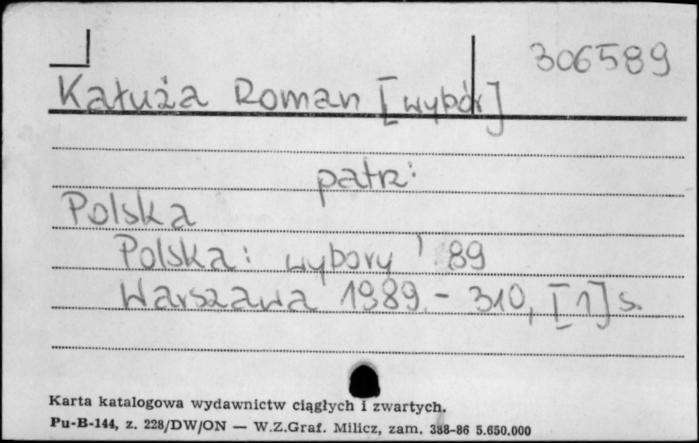 306589
Kałuża Roman [wybór]
patrz:
Polska
Polska: wybory '89
Warszawa 1989. - 310, [1] s.
Karta katalogowa wydawnictw ciągłych i zwartych.
Pu-B-144, z. 228/DW/ON — W.Z.Graf. Milicz, zam. 388-86 5.650.000